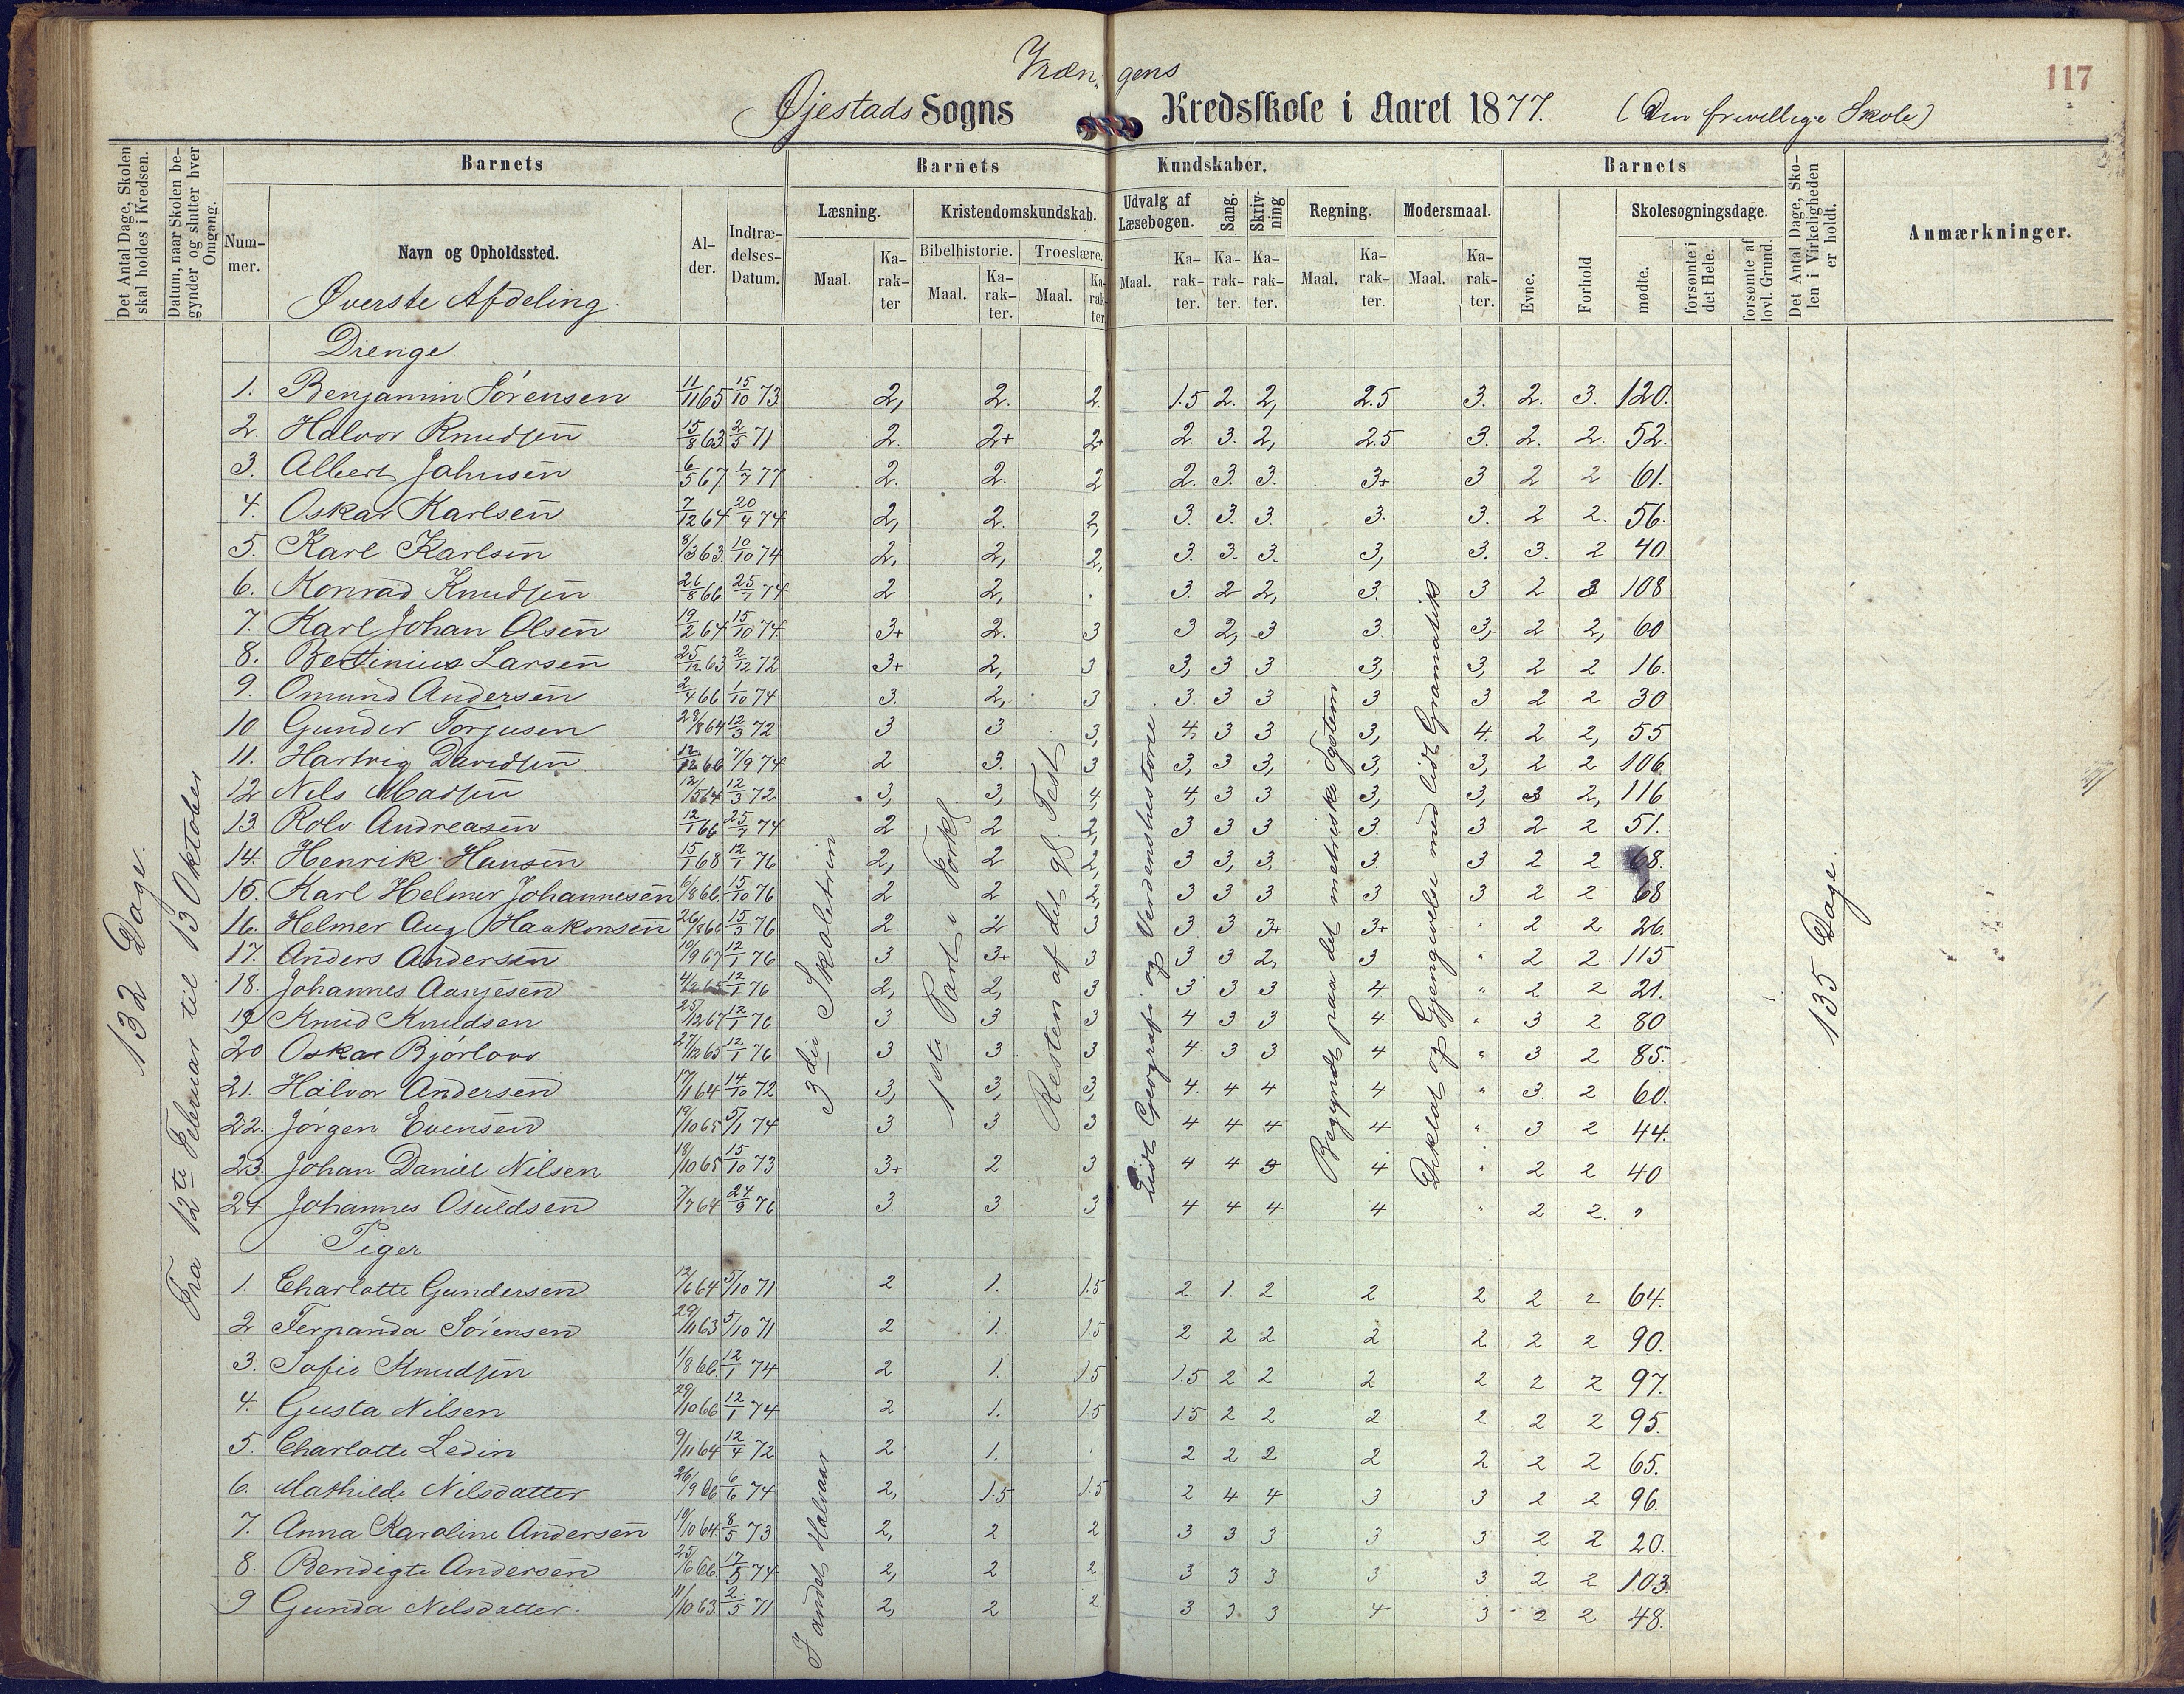 Vræn- gens
117
Øjestads Sogns Kredsskole i Aaret 1877. (Den frivillige Skole)
Det Antal Dage, Skolen skal holdes i Kredsen.
Datum, naar Skolen begynder og slutter hver Omgang.
Barnets
Barnets Kundskaber.
Barnets
Det Antal Dage, Skolen i Virkeligheden er holdt.
Anmærkninger.
Nummer.
Navn og Opholdssted.
Alder.
Indtrædelses-Datum.
Læsning.
Kristendomskundskab.
Udvalg af Læsebogen.
Sang.
Skrivning
Regning.
Modersmaal.
Evne.
Forhold
Skolesøgningsdage.
Bibelhistorie.
Troeslære.
Maal. Karakter
Maal. Karakter.
Maal. Karakter
Maal. Karakter. Karakter. Karakter.
Maal. Karakter.
Maal. Karakter.
mødte.
forsømte i det Hele.
forsømte af lovl. Grund.
Øverste Afdeling.
Drenge
132 Dage.
Fra 12te Februar til 13 Oktober
3die Skoletrin
1ste Part i Forkl.
Resten af det gl. Test.
Lidt Geografi og Verdenshistorie
Begyndt paa det metriske System
Diktat og Gjengivelse med lidt Gramatik
135 Dage.
1. Benjamin Sørensen 11/11 65 15/10 73 2, 2. 2. 1.5 2. 2, 2.5 3. 2. 3. 120.
2. Halvor Knudsen 15/8 63 2/5 71 2. 2+ 2+ 2. 3. 2, 2.5 3. 2. 2. 52.
3. Albert Johnsen 6/5 67 1/7 77 2. 2. 2 2. 3. 3. 3+ 3 2 2 61.
4. Oskar Karlsen 7/12 64 20/4 74 2, 2. 2, 3. 3. 3. 3. 3. 2 2. 56.
5. Karl Karlsen 8/3 63 10/10 74 2, 2, 2, 3. 3. 3. 3, 3. 3. 2 40
6. Konrad Knudsen 26/8 66 25/7 74 2 2, . 3. 2 2, 3. 3 2 3 108
7. Karl Johan Olsen 19/2 64 15/10 74 3+ 2. 3 3 2, 3 3. 3, 2 2, 60
8. Bertinius Larsen 25/12 63 2/12 72 3+ 2, 3 3, 3 3 3, 3, 2 2 16.
9. Omund Andersen 2/4 66 1/10 74 3. 2, 3 3. 3 3 3 3 2 2 30
10 Gunder Torjusen 28/8 64 12/3 72 3 3 3, 4, 3 3 3, 4. 2 2, 55
11. Hartvig Davidsen 12/12 66 7/9 74 2 3. 3 3, 3 3, 3, 3, 2 2 106
12 Nils Madsen 12/5 64 12/3 72 3, 3, 4, 4, 3 3 3, 3, 3 2, 116
13. Rolv Andreasen 12/1 66 25/7 74 2 2 2, 3 3 3 3. 3 2 2 51.
14. Henrik Hansen 15/1 68 12/1 76 2, 2 2, 3 3, 3, 3. 3 2 2 68.
15. Karl Helmer Johannesen 6/8 66. 15/10 76 2 2 2, 3 3 3 3 3 2 2 68
16. Helmer Aug. Haakonsen 26/8 66 15/3 76 2 2 3 3. 3 3+ 3+ " 2 2 26.
17. Anders Andersen 10/9 67 12/1 76 3 3+ 3 3 3 2, 3 " 2 2 115
18. Johannes Aanjesen 4/2 65 12/1 76 2, 2, 3 3 3 3 4 " 2 2 21.
19 Knud Knudsen 25/12 67 12/1 76 3 3 3 4 3 3 4 " 3 2 80
20 Oskar Bjørlovs 27/12 65 12/1 76 3 3 3 4 3 3 4 " 3 2 85.
21. Halvor Andersen 17/1 64 14/10 72 3, 3, 3, 4. 4 4 4 " 3. 2 60.
22. Jørgen Evensen 19/10 65 5/1 74 3 3 3 4 4 4 4 " 3 2 44.
23. Johan Daniel Nilsen 18/10 65 15/10 73 3+ 2 3 4 4 3 4 " 2 2 40
24 Johannes Osuldsen 7/7 64 24/9 76 3. 3 3 4 4 4 4 " 2 2. "
Piger
I andet Halvaar
1. Charlotte Gundersen 12/6 64 5/10 71 2 1. 1.5 2. 1. 2 2 2 2 2 64.
2 Fernanda Sørensen 29/11 63 5/10 71 2 1. 1.5 2 2 2 2 2 2 2 90.
3. Sofie Knudsen 1/8 66. 12/1 74 2 1. 1.5 1.5 2 2 2 2 2 2 97.
4. Gusta Nilsen 29/10 66 12/1 74 2 1. 1.5 1.5 2 2 2 2 2 2 95.
5. Charlotte Ledin 9/11 64 12/4 72 2 1. . 2 2 2 2 2 2 2 65.
6. Mathilde Nilsdatter 26/9 66. 6/6 74 2, 1.5 1.5 2 4 4 3 3 2 2 96.
7. Anna Karoline Andersen 19/10 64. 8/5 73 2, 2 2 3 3 3 3 3 2 2 20.
8. Bendigte Andersen 25/6 66. 17/5 74 2, 2 2 3 3 3 3 3 2 2 103.
9 Gunda Nilsdatter. 11/10 63. 2/5 71 2, 2 2 3 3. 3 4 3 2 2 48.